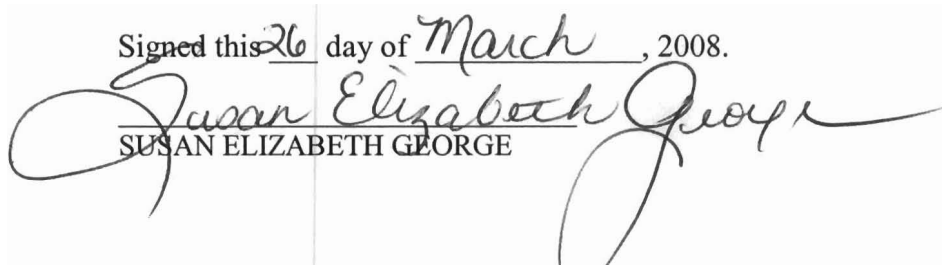 Signed this 26 day of March, 2008.
Susan Elizabeth George
SUSAN ELIZABETH GEORGE